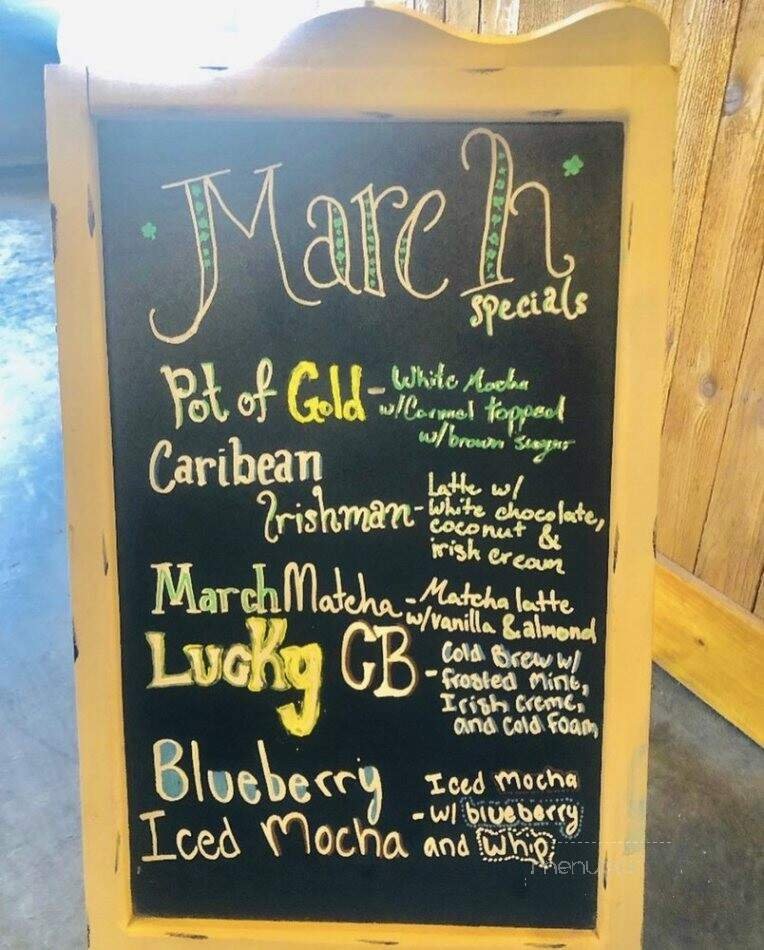 March
specials
Pot of Gold - White Mocha
w/Carmel topped
w/brown sugar
Caribean
Irishman - Latte w/
white chocolate,
coconut &
irish cream
March Matcha - Matcha latte
w/vanilla & almond
Lucky CB - Cold Brew w/
frosted mint,
Irish creme,
and cold foam
Blueberry
Iced Mocha - Iced Mocha
w/ blueberry
and whip